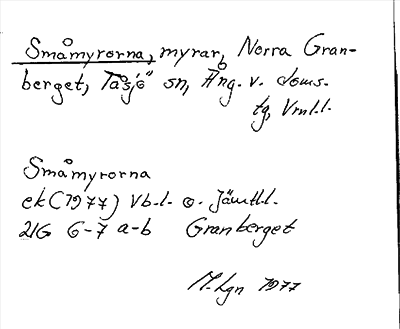 Småmyrorna, myrar, Norra Gran-
berget, Tåsjö sn, Ång. v. doms.
tg, Vnl.l.
Småmyrorna
ek (1977) Vb.l. o. Jämtl.l.
21G 6-7 a-b Granberget
M. Lgn 1977